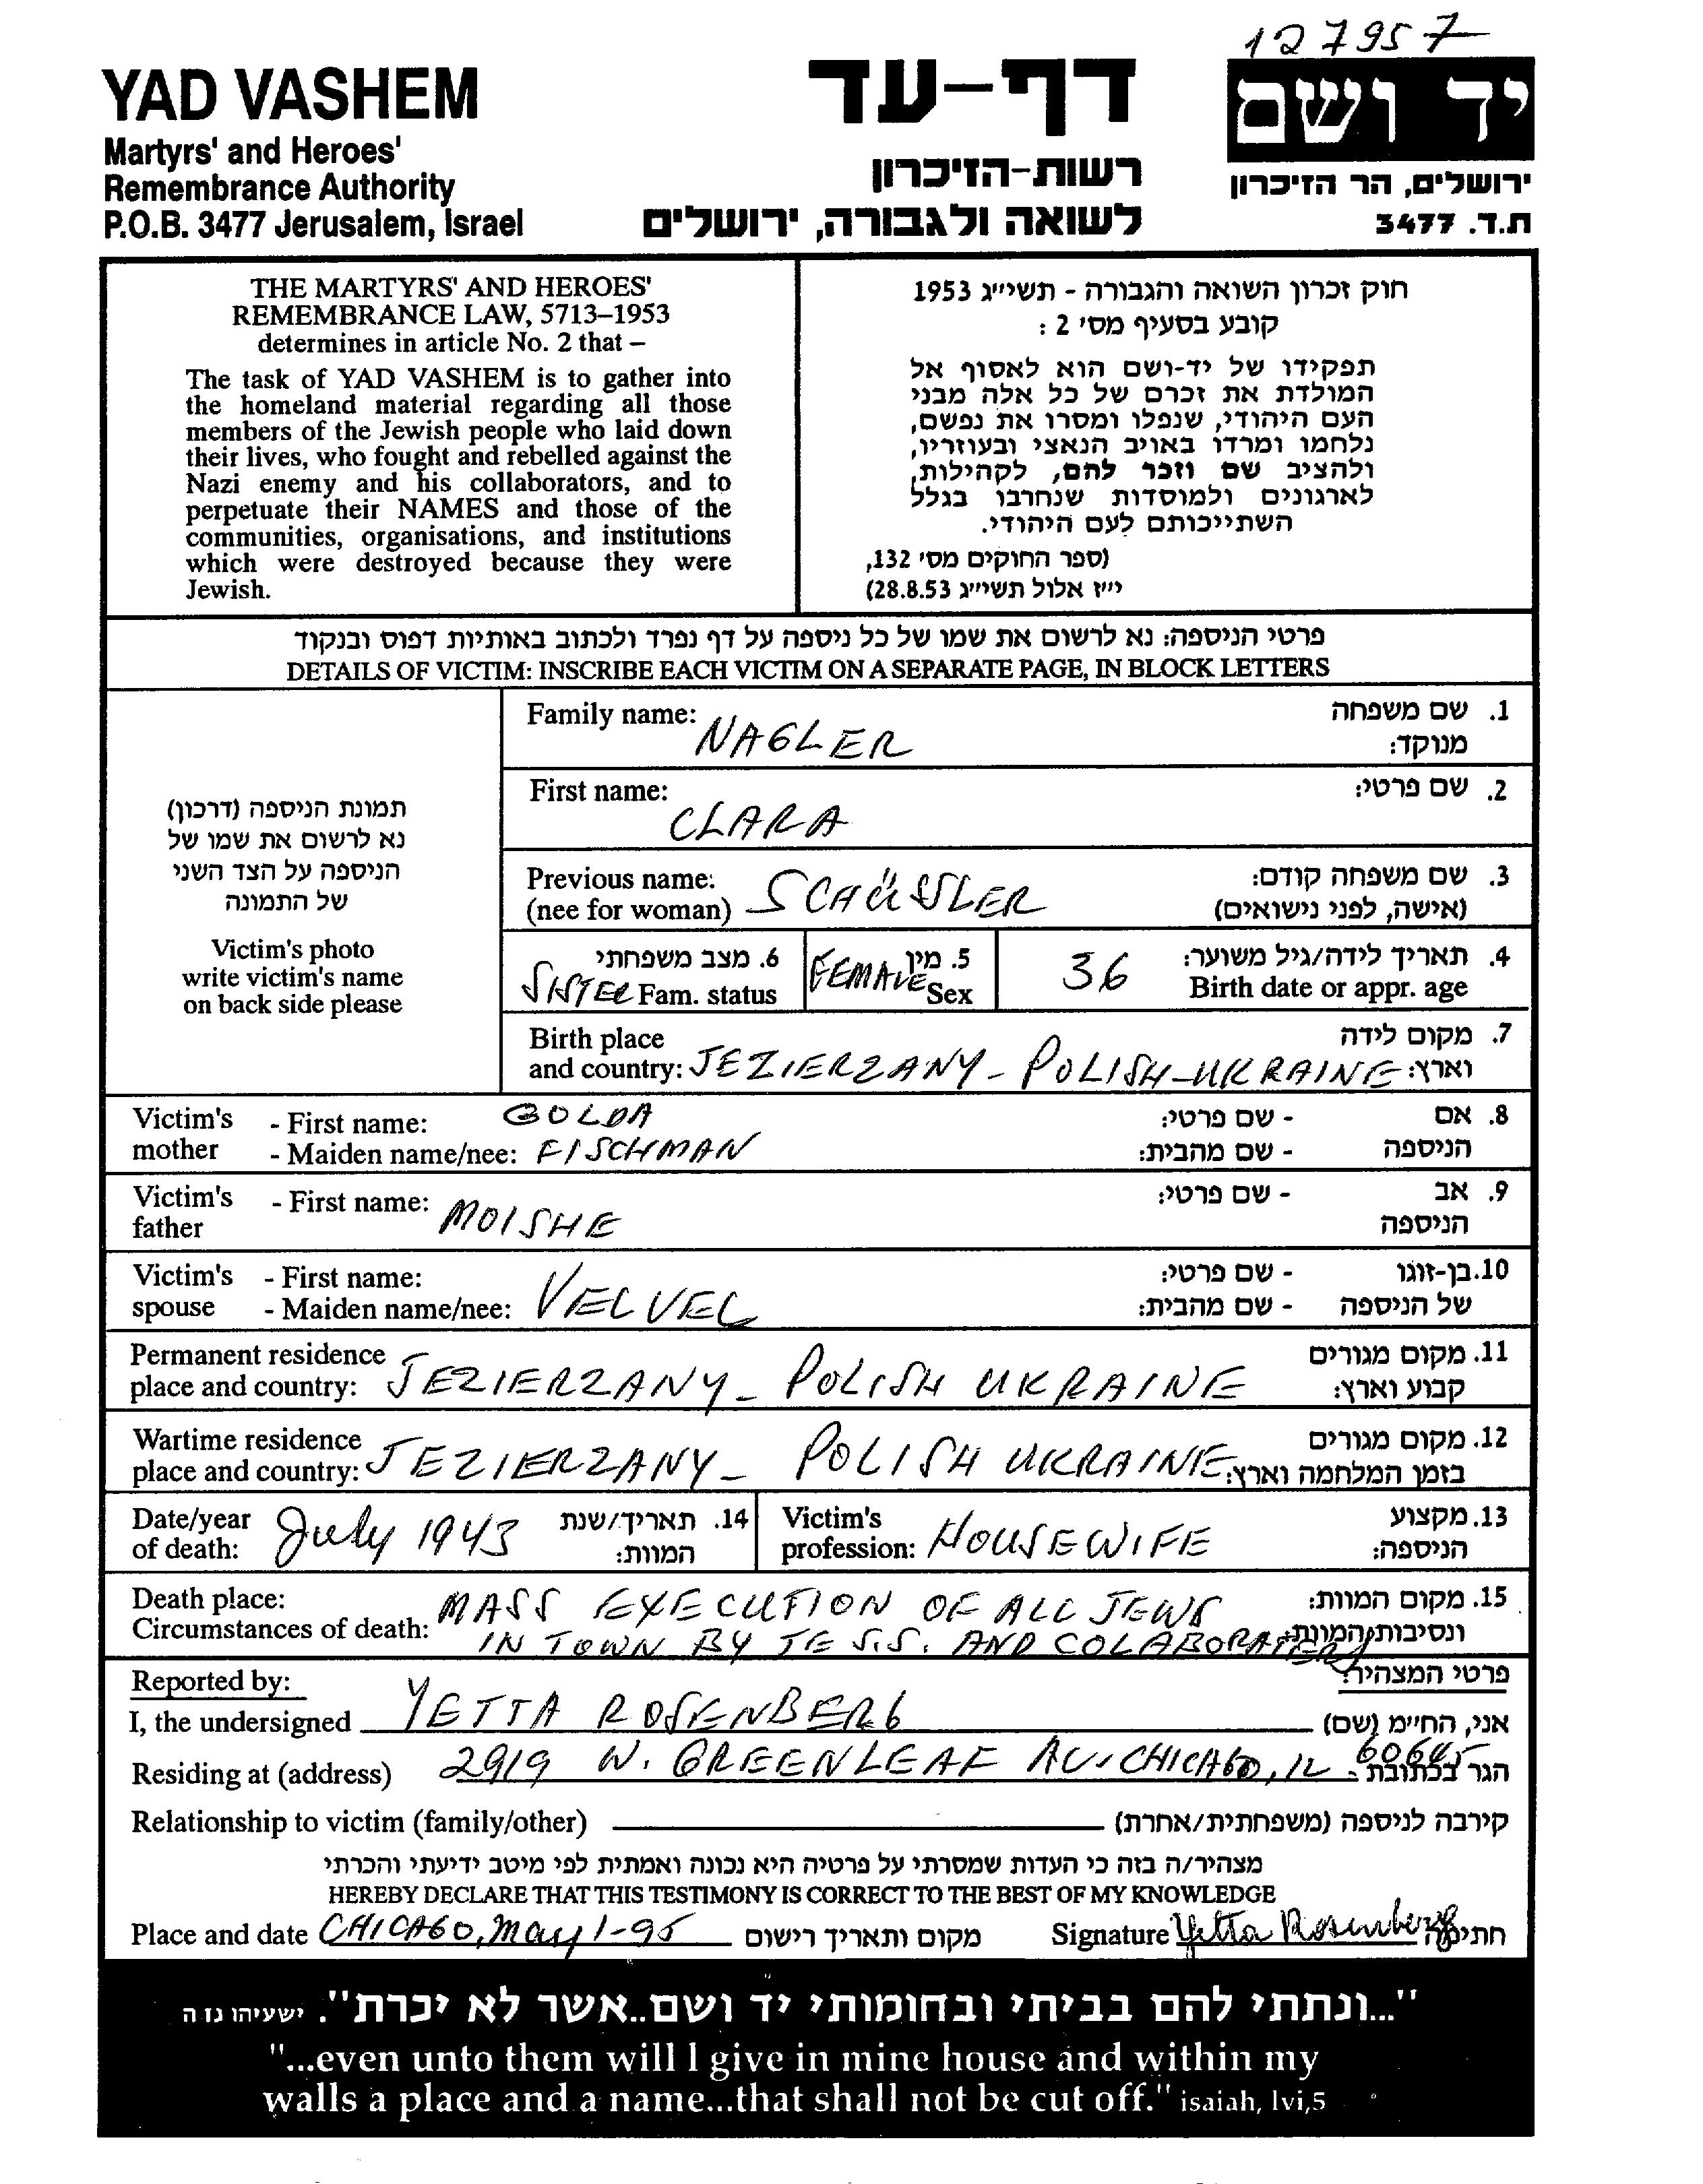 127957
YAD VASHEM
Martyrs' and Heroes'
Remembrance Authority
P.O.B. 3477 Jerusalem, Israel
דף-עד
רשות-הזיכרון
לשואה ולגבורה, ירושלים
יד ושם
ירושלים, הר הזיכרון
ת.ד. 3477
THE MARTYRS' AND HEROES'
REMEMBRANCE LAW, 5713–1953
determines in article No. 2 that –
The task of YAD VASHEM is to gather into
the homeland material regarding all those
members of the Jewish people who laid down
their lives, who fought and rebelled against the
Nazi enemy and his collaborators, and to
perpetuate their NAMES and those of the
communities, organisations, and institutions
which were destroyed because they were
Jewish.
חוק זכרון השואה והגבורה - תשי״ג 1953
קובע בסעיף מס׳ 2 :
תפקידו של יד-ושם הוא לאסוף אל
המולדת את זכרם של כל אלה מבני
העם היהודי, שנפלו ומסרו את נפשם,
נלחמו ומרדו באויב הנאצי ובעוזריו,
ולהציב שם וזכר להם, לקהילות,
לארגונים ולמוסדות שנחרבו בגלל
השתייכותם לעם היהודי.
(ספר החוקים מס׳ 132,
י״ז אלול תשי״ג 28.8.53)
פרטי הניספה: נא לרשום את שמו של כל ניספה על דף נפרד ולכתוב באותיות דפוס ובנקוד
DETAILS OF VICTIM: INSCRIBE EACH VICTIM ON A SEPARATE PAGE, IN BLOCK LETTERS
תמונת הניספה (דרכון)
נא לרשום את שמו של
הניספה על הצד השני
של התמונה
Victim's photo
write victim's name
on back side please
Family name: NAGLER 1. שם משפחה
מנוקד:
First name: CLARA 2. שם פרטי:
Previous name: 3. שם משפחה קודם:
(nee for woman) SCHÜSSLER (אישה, לפני נישואים)
6. מצב משפחתי 5. מין 4. תאריך לידה/גיל משוער:
SISTER Fam. status FEMALE Sex 36 Birth date or appr. age
Birth place 7. מקום לידה
and country: JEZIERZANY - POLISH-UKRAINE וארץ:
Victim's - First name: GOLDA - שם פרטי: 8. אם
mother - Maiden name/nee: FISCHMAN - שם מהבית: הניספה
Victim's - First name: MOISHE - שם פרטי: 9. אב
father הניספה
Victim's - First name: - שם פרטי: 10.בן-זוגו
spouse - Maiden name/nee: VELVEL - שם מהבית: של הניספה
Permanent residence 11. מקום מגורים
place and country: JEZIERZANY - POLISH UKRAINE קבוע וארץ:
Wartime residence 12. מקום מגורים
place and country: JEZIERZANY - POLISH UKRAINE בזמן המלחמה וארץ:
Date/year 14. תאריך/שנת Victim's 13. מקצוע
of death: July 1943 המוות: profession: HOUSEWIFE הניספה:
Death place: MASS EXECUTION OF ALL JEWS 15. מקום המוות:
Circumstances of death: IN TOWN BY TE S.S. AND COLABORATERS ונסיבות המוות:
Reported by: פרטי המצהיר:
I, the undersigned YETTA ROSENBERG אני, הח״מ (שם)
Residing at (address) 2919 W. GREENLEAF AV. CHICAGO, IL 60645 הגר בכתובת
Relationship to victim (family/other) קירבה לניספה (משפחתית/אחרת)
מצהיר/ה בזה כי העדות שמסרתי על פרטיה היא נכונה ואמתית לפי מיטב ידיעתי והכרתי
HEREBY DECLARE THAT THIS TESTIMONY IS CORRECT TO THE BEST OF MY KNOWLEDGE
Place and date CHICAGO, May 1-95 מקום ותאריך רישום Signature Yetta Rosenberg חתימה
"...ונתתי להם בביתי ובחומותי יד ושם..אשר לא יכרת". ישעיהו נז ה
"...even unto them will I give in mine house and within my
walls a place and a name...that shall not be cut off." isaiah, lvi,5